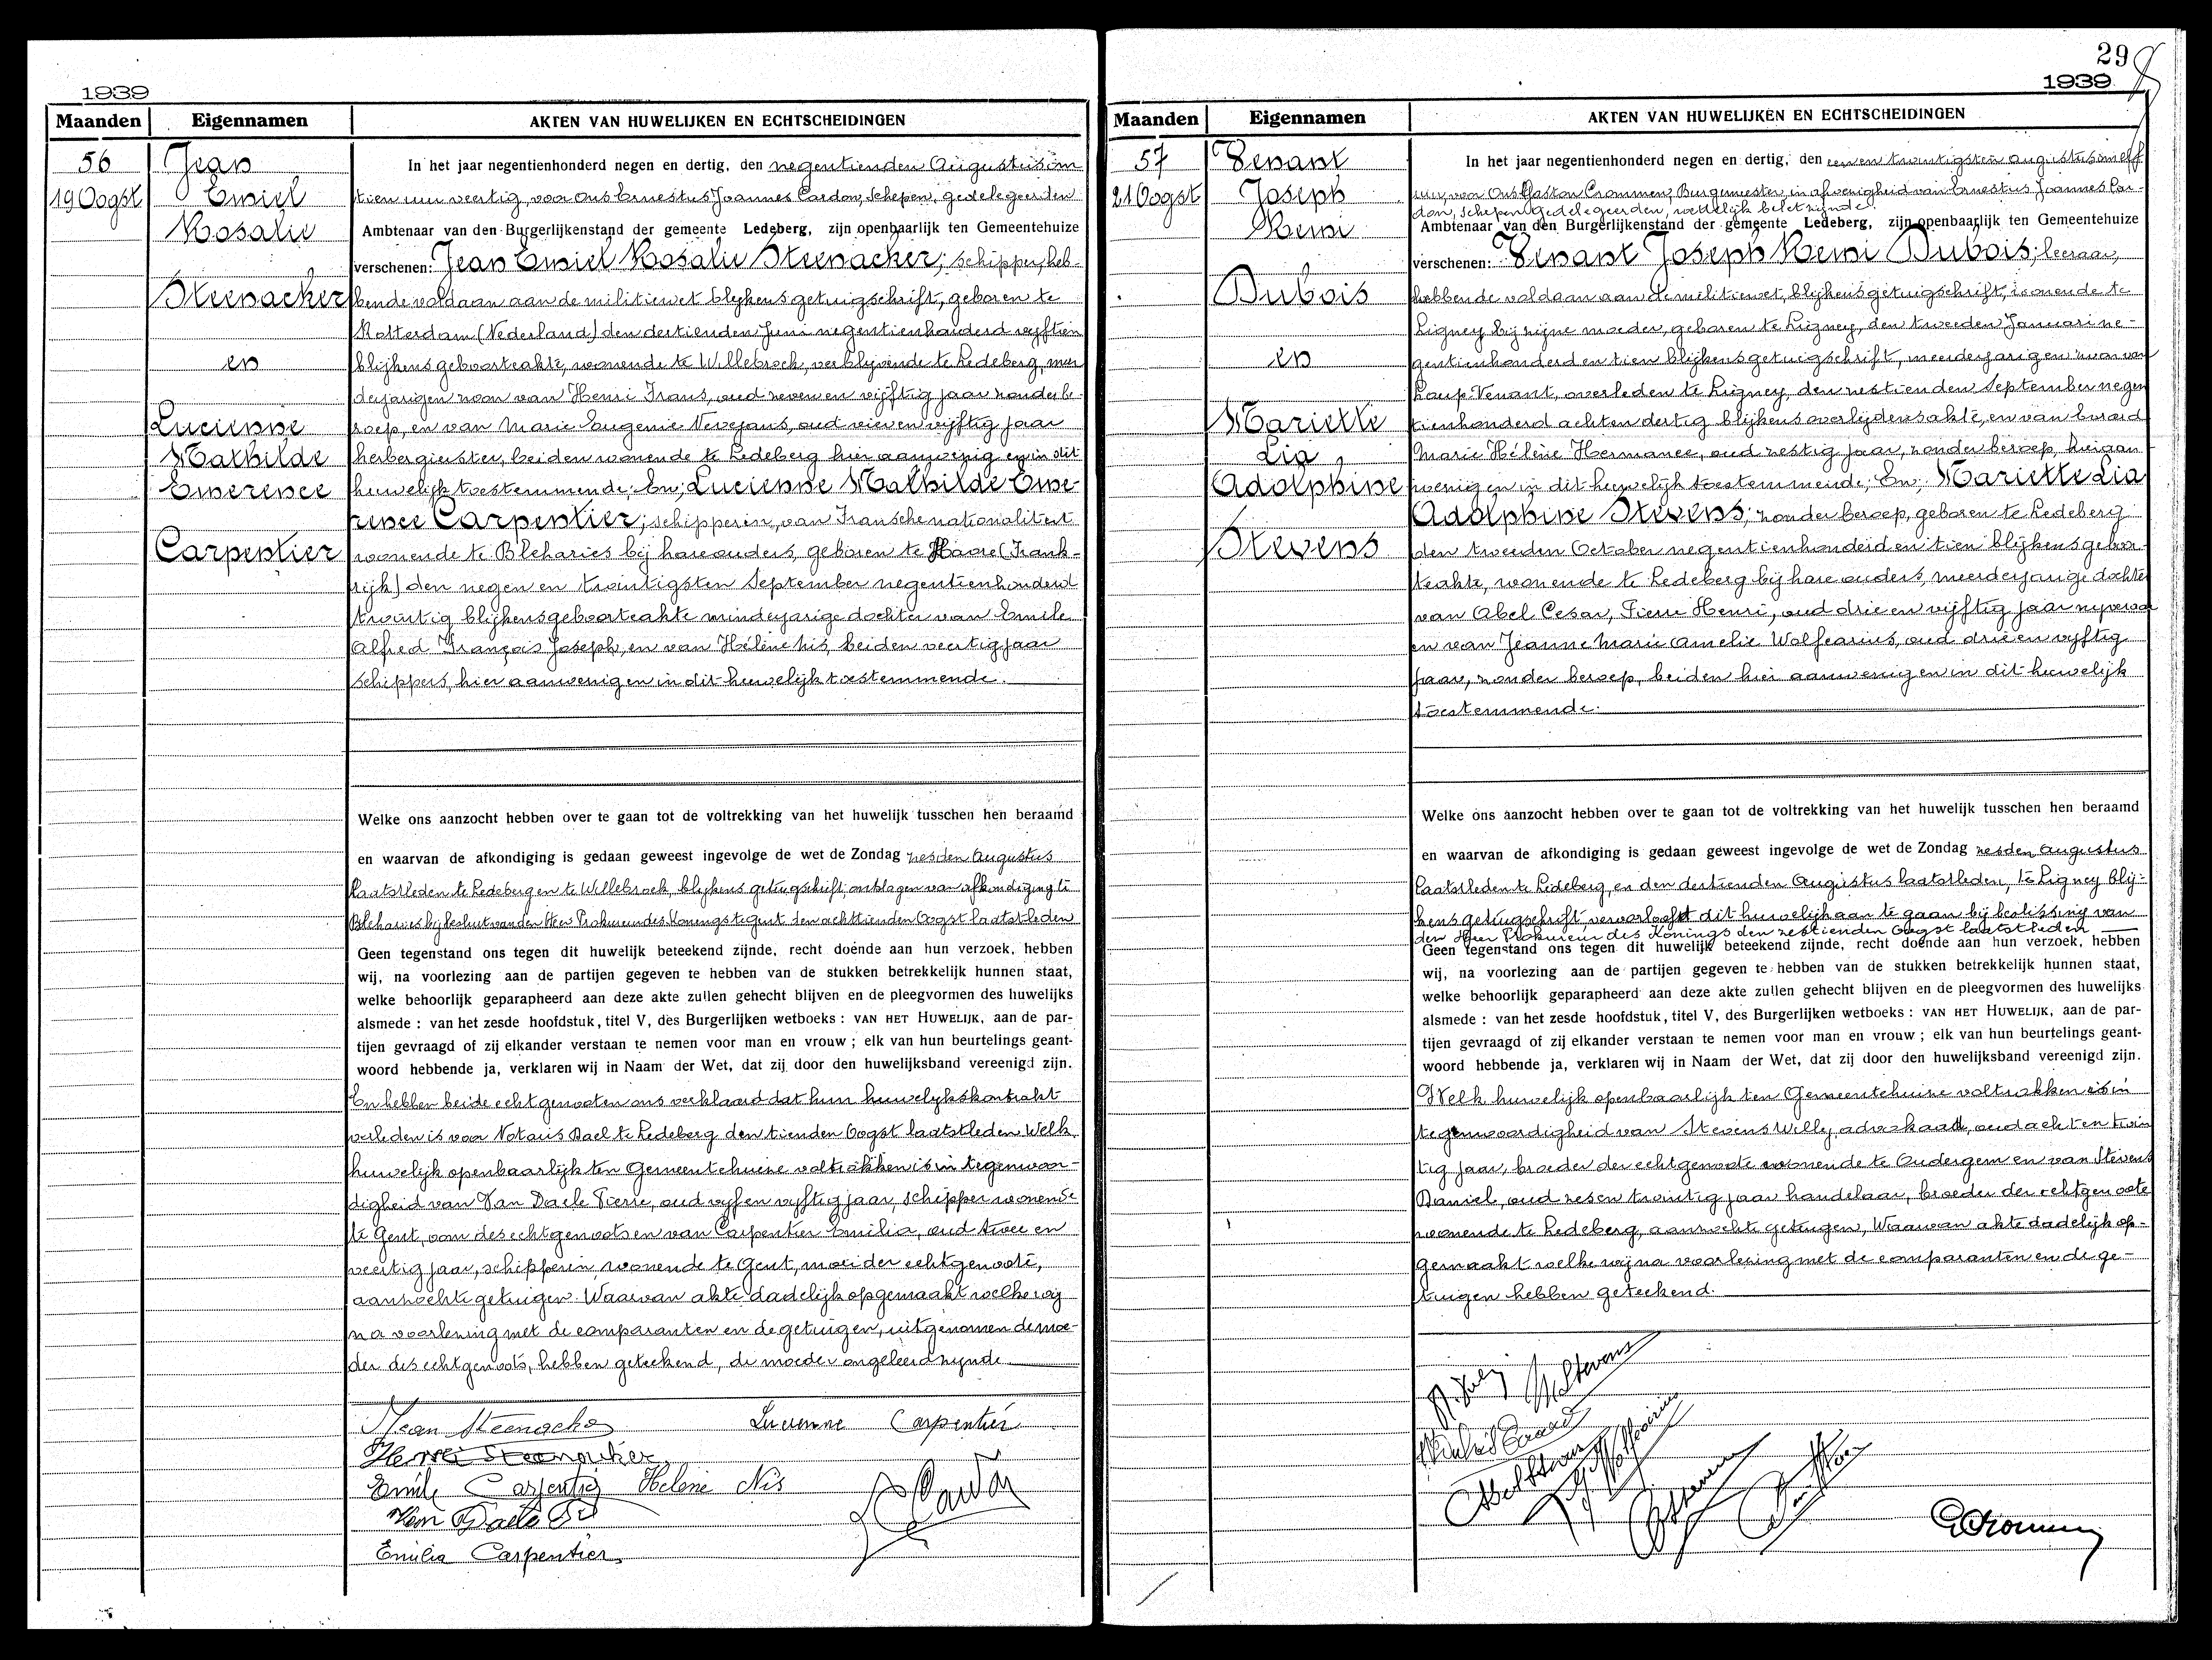 1939
Maanden
Eigennamen
AKTEN VAN HUWELIJKEN EN ECHTSCHEIDINGEN
56
19 Oogst
Jean
Emiel
Rosalie
Steenacker
en
Lucienne
Mathilde
Emerence
Carpentier
In het jaar negentienhonderd negen en dertig, den negentienden Augustus om
tien uur veertig, voor ons Ernestus Joannes Cardon, schepen, gedelegeerden
Ambtenaar van den Burgerlijkenstand der gemeente Ledeberg, zijn openbaarlijk ten Gemeentehuize
verschenen: Jean Emiel Rosalie Steenacker; schipper, heb-
bende voldaan aan de militiewet blijkens getuigschrift, geboren te
Rotterdam (Nederland) den dertienden Juni negentienhonderd vijftien
blijkens geboorteakte, wonende te Willebroek, verblijvende te Ledeberg, meer
derjarigen zoon van Henri Frans, oud zeven en vijftig jaar zonder be-
roep, en van Marie Eugenie Nevejans, oud vier en vijftig jaar
herbergierster, beiden wonende te Ledeberg hier aanwezig en in dit
huwelijk toestemmende; En; Lucienne Mathilde Eme-
rence Carpentier; schipperin, van Fransche nationaliteit
wonende te Bleharies bij hare ouders, geboren te Havre (Frank-
rijk) den negen en twintigsten September negentienhonderd
twintig blijkens geboorteakte minderjarige dochter van Emile
Alfred François Joseph, en van Hélène Nis, beiden veertig jaar
schippers, hier aanwezig en in dit huwelijk toestemmende.
Welke ons aanzocht hebben over te gaan tot de voltrekking van het huwelijk tusschen hen beraamd
en waarvan de afkondiging is gedaan geweest ingevolge de wet de Zondag zesden Augustus
laatstleden te Ledeberg en te Willebroek, blijkens getuigschrift, ontslagen van afkondiging te
Bleharies bij besluit van den Heer Prokureur des Konings te Gent den achttienden Oogst laatstleden
Geen tegenstand ons tegen dit huwelijk beteekend zijnde, recht doende aan hun verzoek, hebben
wij, na voorlezing aan de partijen gegeven te hebben van de stukken betrekkelijk hunnen staat,
welke behoorlijk geparapheerd aan deze akte zullen gehecht blijven en de pleegvormen des huwelijks
alsmede : van het zesde hoofdstuk, titel V, des Burgerlijken wetboeks : VAN HET HUWELIJK, aan de par-
tijen gevraagd of zij elkander verstaan te nemen voor man en vrouw ; elk van hun beurtelings geant-
woord hebbende ja, verklaren wij in Naam der Wet, dat zij door den huwelijksband vereenigd zijn.
En hebben beide echtgenooten ons verklaard dat hun huwelijkskontrakt
verleden is voor Notaris Dael te Ledeberg den tienden Oogst laatstleden Welk
huwelijk openbaarlijk ten Gemeentehuize voltrokken is in tegenwoor-
digheid van Van Daele Pierre, oud vijf en vijftig jaar, schipper wonende
te Gent, oom des echtgenoots en van Carpentier Emilia, oud twee en
veertig jaar, schipperin, wonende te Gent, moei der echtgenoote,
aanzochte getuigen. Waarvan akte dadelijk opgemaakt welke wij
na voorlezing met de comparanten en de getuigen, uitgenomen de moe-
der des echtgenoots, hebben geteekend, de moeder ongeleerd zijnde
Jean Steenacker Lucienne Carpentier
Henri Steenacker
Emile Carpentier Helene Nis
Van Daele Pi Cardon
Emilia Carpentier
29
1939
Maanden
Eigennamen
AKTEN VAN HUWELIJKEN EN ECHTSCHEIDINGEN
57
21 Oogst
Venant
Joseph
Remi
Dubois
en
Mariette
Lia
Adolphine
Stevens
In het jaar negentienhonderd negen en dertig, den een en twintigsten augustus om elf
uur, voor Ons Gaston Crommen, Burgemeester, in afwezigheid van Ernestus Joannes Car-
don, schepen gedelegeerden, wettelijk belet zijnde.
Ambtenaar van den Burgerlijkenstand der gemeente Ledeberg, zijn openbaarlijk ten Gemeentehuize
verschenen: Venant Joseph Remi Dubois; leeraar,
hebbende voldaan aan de militiewet, blijkens getuigschrift, wonende te
Ligney bij zijne moeder, geboren te Ligney, den tweeden Januari ne-
gentienhonderd en tien blijkens getuigschrift, meerderjarigen zoon van
Loup Venant, overleden te Ligney, den zestienden September negen
tienhonderd acht en dertig blijkens overlijdensakte, en van Evrard
Marie Hélène Hermance, oud zestig jaar, zonder beroep, hier aan
wezig en in dit huwelijk toestemmende; En; Mariette Lia
Adolphine Stevens; zonder beroep, geboren te Ledeberg
den tweeden October negentienhonderd en tien blijkens geboor-
teakte, wonende te Ledeberg bij hare ouders, meerderjarige dochter
van Abel Cesar, Pierre Henri, oud drie en vijftig jaar nijveraar
en van Jeanne Marie Amelie Wolfcarius, oud drie en vijftig
jaar, zonder beroep, beiden hier aanwezig en in dit huwelijk
toestemmende.
Welke ons aanzocht hebben over te gaan tot de voltrekking van het huwelijk tusschen hen beraamd
en waarvan de afkondiging is gedaan geweest ingevolge de wet de Zondag zesden augustus
laatstleden te Ledeberg, en den dertienden Augustus laatstleden, te Ligney blij-
kens getuigschrift veroorlooft dit huwelijk aan te gaan bij beslissing van
den Heer Prokureur des Konings den zestienden Oogst laatstleden
Geen tegenstand ons tegen dit huwelijk beteekend zijnde, recht doende aan hun verzoek, hebben
wij, na voorlezing aan de partijen gegeven te hebben van de stukken betrekkelijk hunnen staat,
welke behoorlijk geparapheerd aan deze akte zullen gehecht blijven en de pleegvormen des huwelijks
alsmede : van het zesde hoofdstuk, titel V, des Burgerlijken wetboeks : VAN HET HUWELIJK, aan de par-
tijen gevraagd of zij elkander verstaan te nemen voor man en vrouw ; elk van hun beurtelings geant-
woord hebbende ja, verklaren wij in Naam der Wet, dat zij door den huwelijksband vereenigd zijn.
Welk huwelijk openbaarlijk ten Gemeentehuize voltrokken is in
tegenwoordigheid van Stevens Willy, advokaat, oud acht en twin
tig jaar, broeder der echtgenoote wonende te Oudergem en van Stevens
Daniel, oud zes en twintig jaar handelaar, broeder der echtgenoote
wonende te Ledeberg, aanzochte getuigen, Waarvan akte dadelijk op-
gemaakt welke wij na voorlezing met de comparanten en de ge-
tuigen hebben geteekend.
M Stevens
Abel Stevens
Wolfcarius
GCrommen